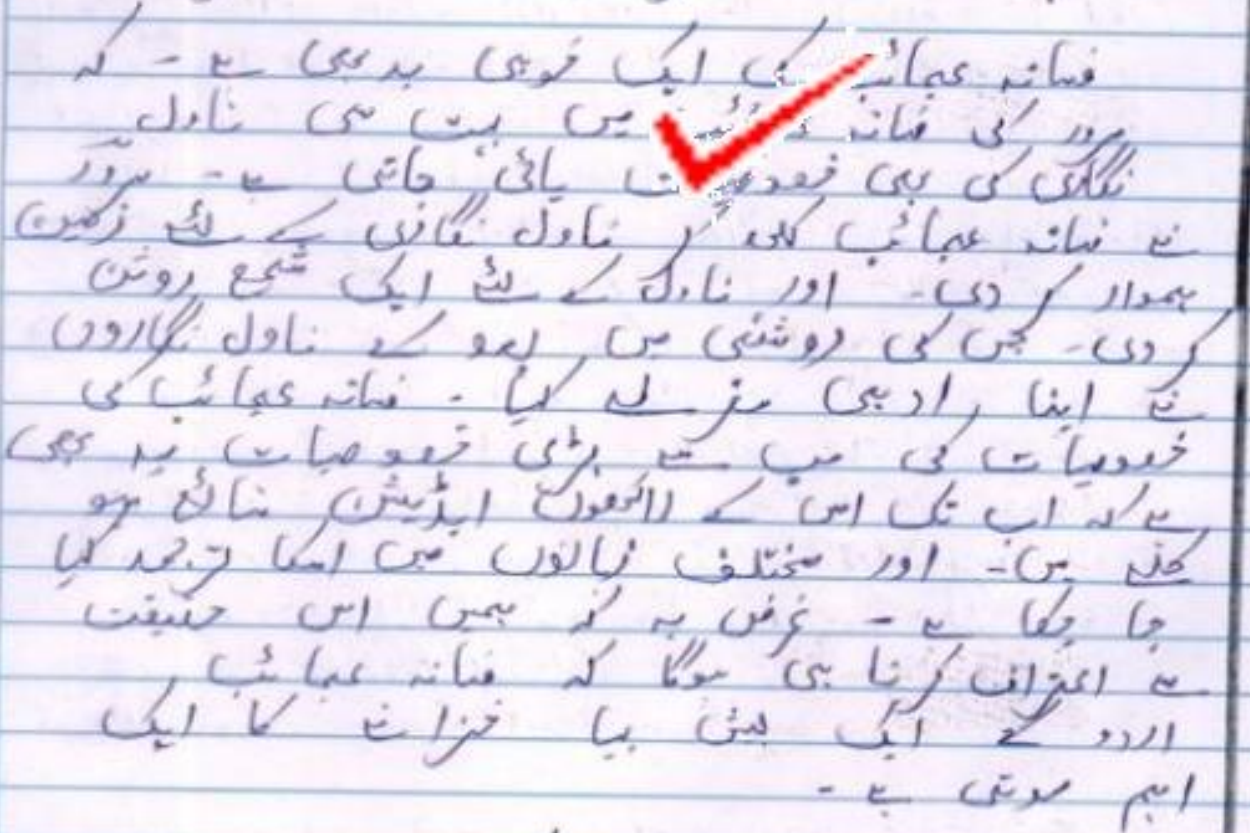 فسانہ عجائب کی ایک خوبی یہ بھی ہے - کہ
سرور کی فسانہ میں بہت سی ناول
نگاری کی بھی خصوصیت پائی جاتی ہے - سرور
نے فسانہ عجائب لکھ کر ناول نگاری کے لئے زمین
ہموار کر دی - اور ناول کے لئے ایک شمع روشن
کر دی - جس کی روشنی میں بعد کے ناول نگاروں
نے اپنا ادبی سفر طے کیا - فسانہ عجائب کی
خصوصیات کی سب سے بڑی خصوصیات یہ بھی
ہے کہ اب تک اس کے لاکھوں ایڈیشن شائع ہو
چکے ہیں - اور مختلف زبانوں میں اسکا ترجمہ کیا
جا چکا ہے - غرض یہ کہ ہمیں اس حقیقت
سے اعتراف کرنا ہی ہوگا کہ فسانہ عجائب
اردو کے ایک بیش بہا خزانے کا ایک
اہم موتی ہے -